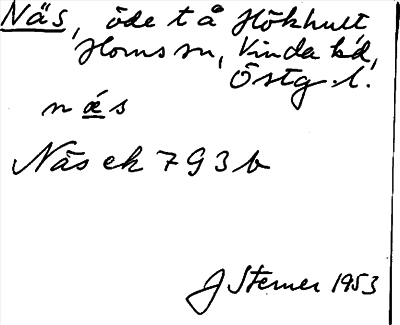 Näs, öde t å Hökhult,
Horns sn, Kinda hd,
Östg. l.
n ǽ s
Näs ek 7 G 3 b
J Sterner 1953